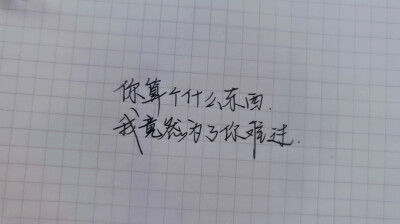 你算个什么东西.
我竟然为了你难过.